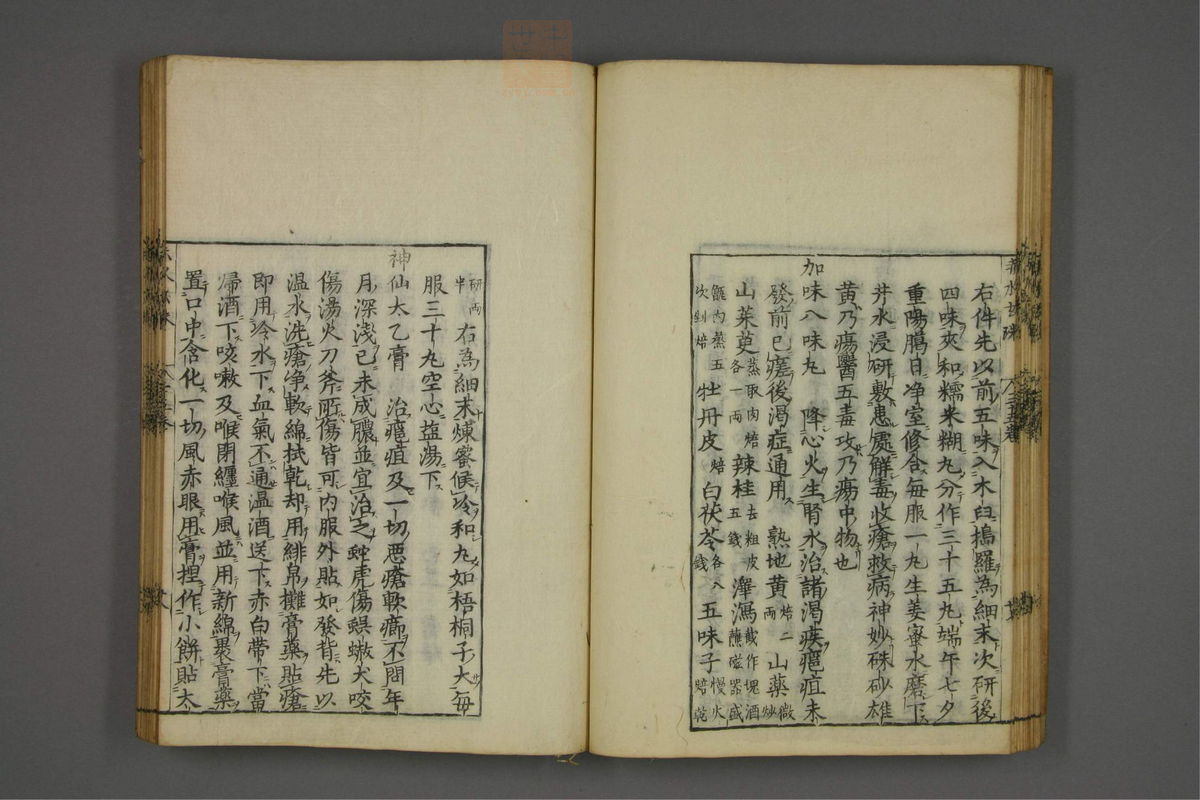 右件先以前五味入木臼搗羅為細末次研後
四味夾和糯米糊丸分作三十五丸端午七夕
重陽臘日净室修合每服一丸生姜蜜水磨下
井水浸研敷患處解毒收瘡救病神妙硃砂雄
黃乃瘍醫五毒攻乃瘍中物也
加味八味丸 降心火生腎水治諸渴疾瘟疽未
發前已瘥後渴症通用 熟地黃焙二兩 山藥微炒
山茱萸蒸取肉焙各一兩 辣桂去粗皮五錢 澤瀉截作塊酒蘸磁器盛
甑内蒸五次剉焙 牡丹皮焙 白茯苓各八錢 五味子慢火焙乾
研兩半 右為細末煉蜜候冷和丸如梧桐子大每
服三十丸空心盐湯下
神仙太乙膏 治瘟疽及一切惡瘡軟癤不問年
月深淺已未成膿並宜治之蛇虎傷蜈蚣犬咬
傷湯火刀斧所傷皆可内服外貼如發背先以
溫水洗瘡净軟綿拭乾却用緋帛攤膏藥貼瘡
即用冷水下血氣不通溫酒送下赤白帶下當
歸酒下咳嗽及喉閉纏喉風並用新綿裹膏藥
置口中含化一切風赤眼用膏捏作小餅貼太